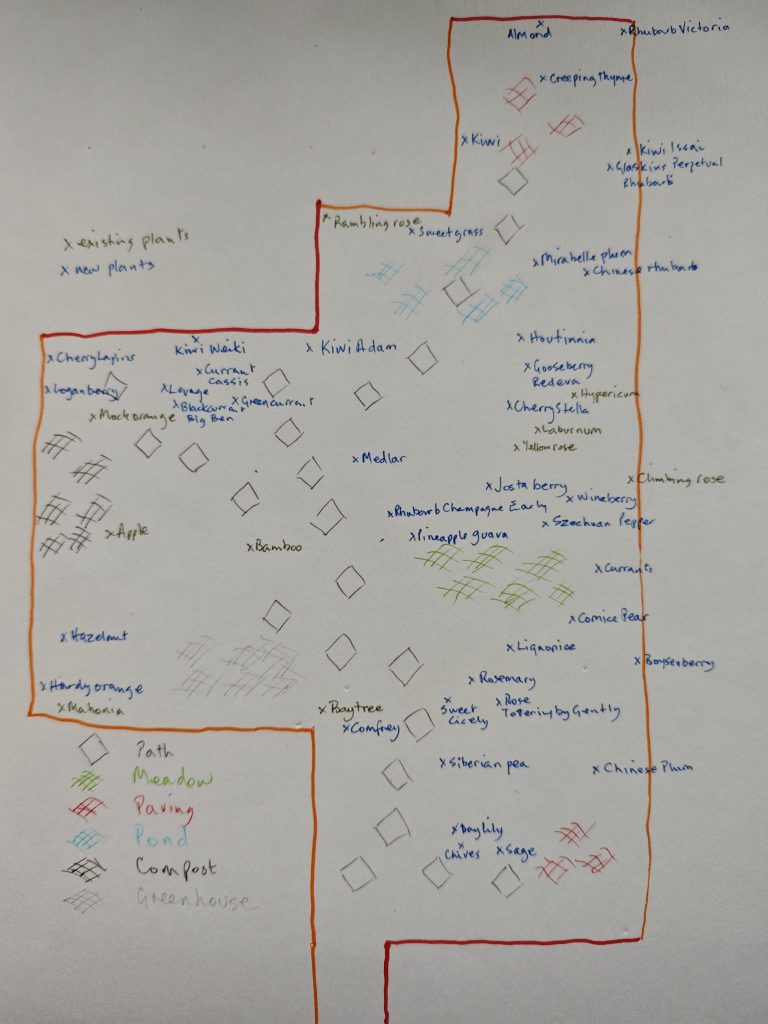 x Almond
x Rhubarb Victoria
x Creeping thyme
x Kiwi
x Kiwi Issai
x Glaskins Perpetual
Rhubarb
x Rambling rose
x Sweet grass
x existing plants
x new plants
x Mirabelle plum
x Chinese rhubarb
x Houttinnia
x Cherry Lapins
x Kiwi Weiki
x Kiwi Adam
x Currant
Cassis
x Gooseberry
Redeva
x Loganberry
x Lovage
x Hypericum
x Blackcurrant
Big Ben
x Greencurrant
x Cherry Stella
x Mock orange
x Laburnum
x Yellow rose
x Medlar
x Climbing rose
x Josta berry
x Wineberry
x Rhubarb Champagne Early
x Szechuan Pepper
x Apple
x Bamboo
x Pineapple guava
x Currants
x Comice Pear
x Hazelnut
x Liquorice
x Boysenberry
x Hardy orange
x Rosemary
x Mahonia
x Baytree
x Sweet
Cicely
x Rose
Tottering by Gently
x Comfrey
Path
x Siberian pea
x Chinese Plum
Meadow
Paving
x Day lily
Pond
x Chives
x Sage
Compost
Greenhouse